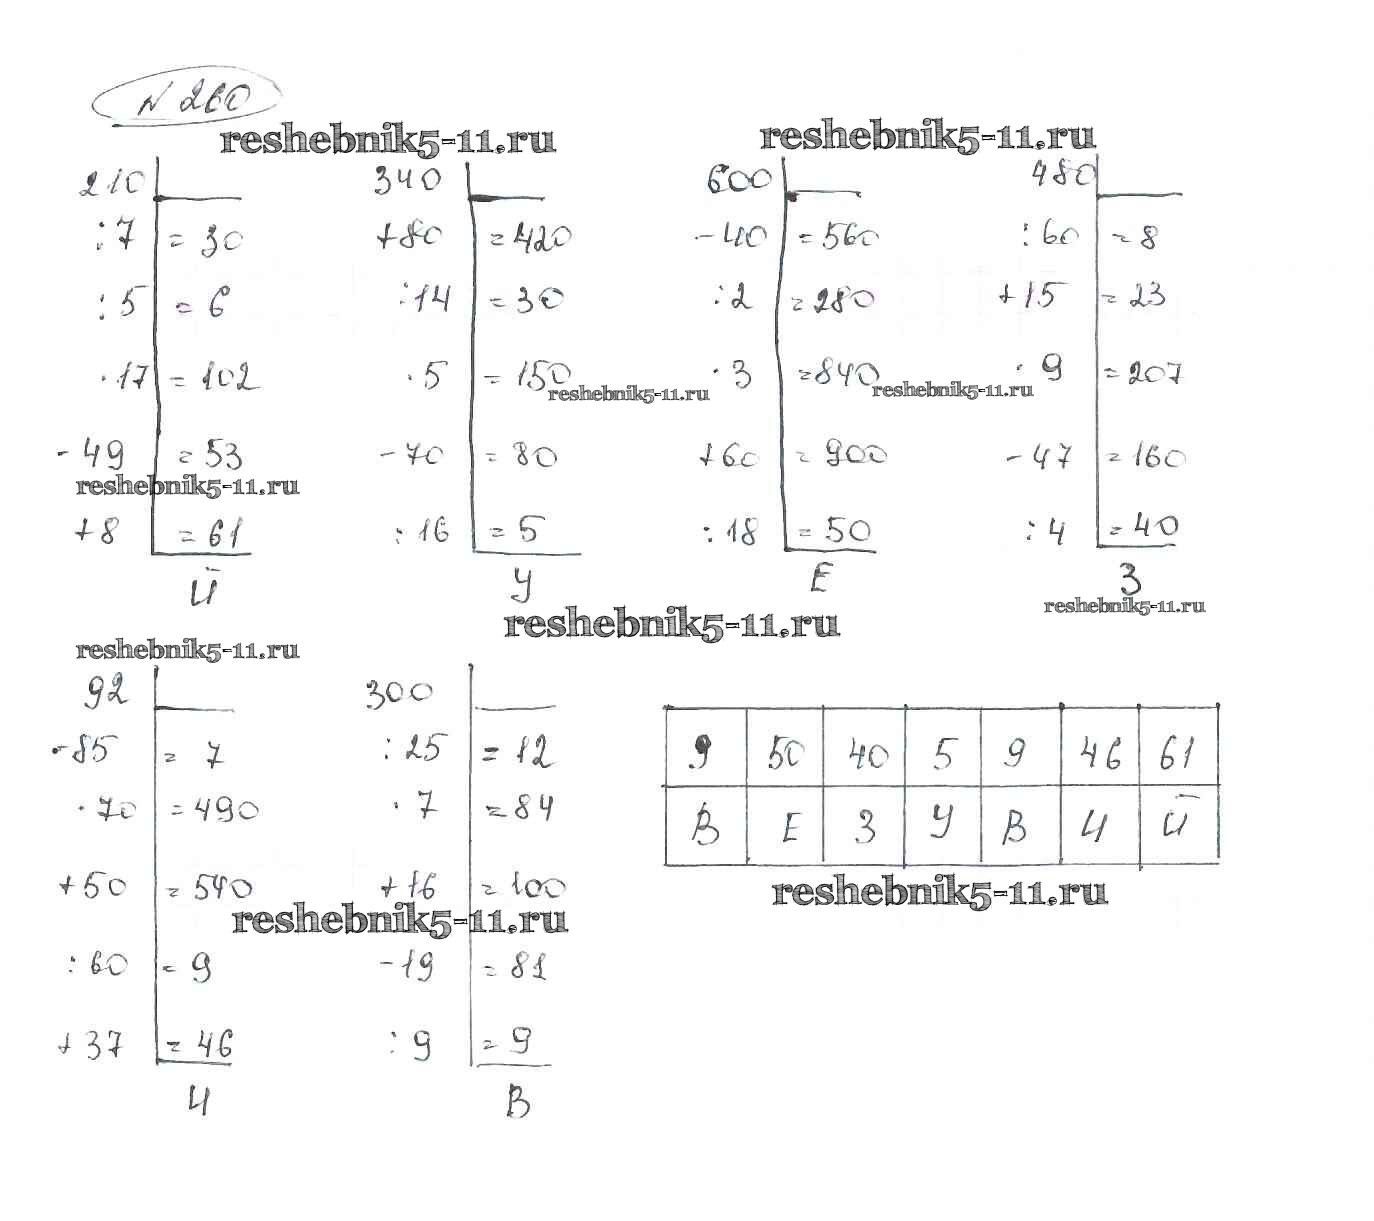 N 260
reshebnik5-11.ru reshebnik5-11.ru
210 340 600 480
:7 = 30 +80 = 420 -40 = 560 :60 = 8
:5 = 6 :14 = 30 :2 = 280 +15 = 23
·17 = 102 ·5 = 150 ·3 = 840 ·9 = 207
reshebnik5-11.ru reshebnik5-11.ru
-49 = 53 -70 = 80 +60 = 900 -47 = 160
reshebnik5-11.ru
+8 = 61 :16 = 5 :18 = 50 :4 = 40
Й У Е З
reshebnik5-11.ru
reshebnik5-11.ru
reshebnik5-11.ru
92 300
-85 = 7 :25 = 12
·70 = 490 ·7 = 84
+50 = 540 +16 = 100
reshebnik5-11.ru
:60 = 9 -19 = 81
+37 = 46 :9 = 9
И В
9 50 40 5 9 46 61
В Е З У В И Й
reshebnik5-11.ru